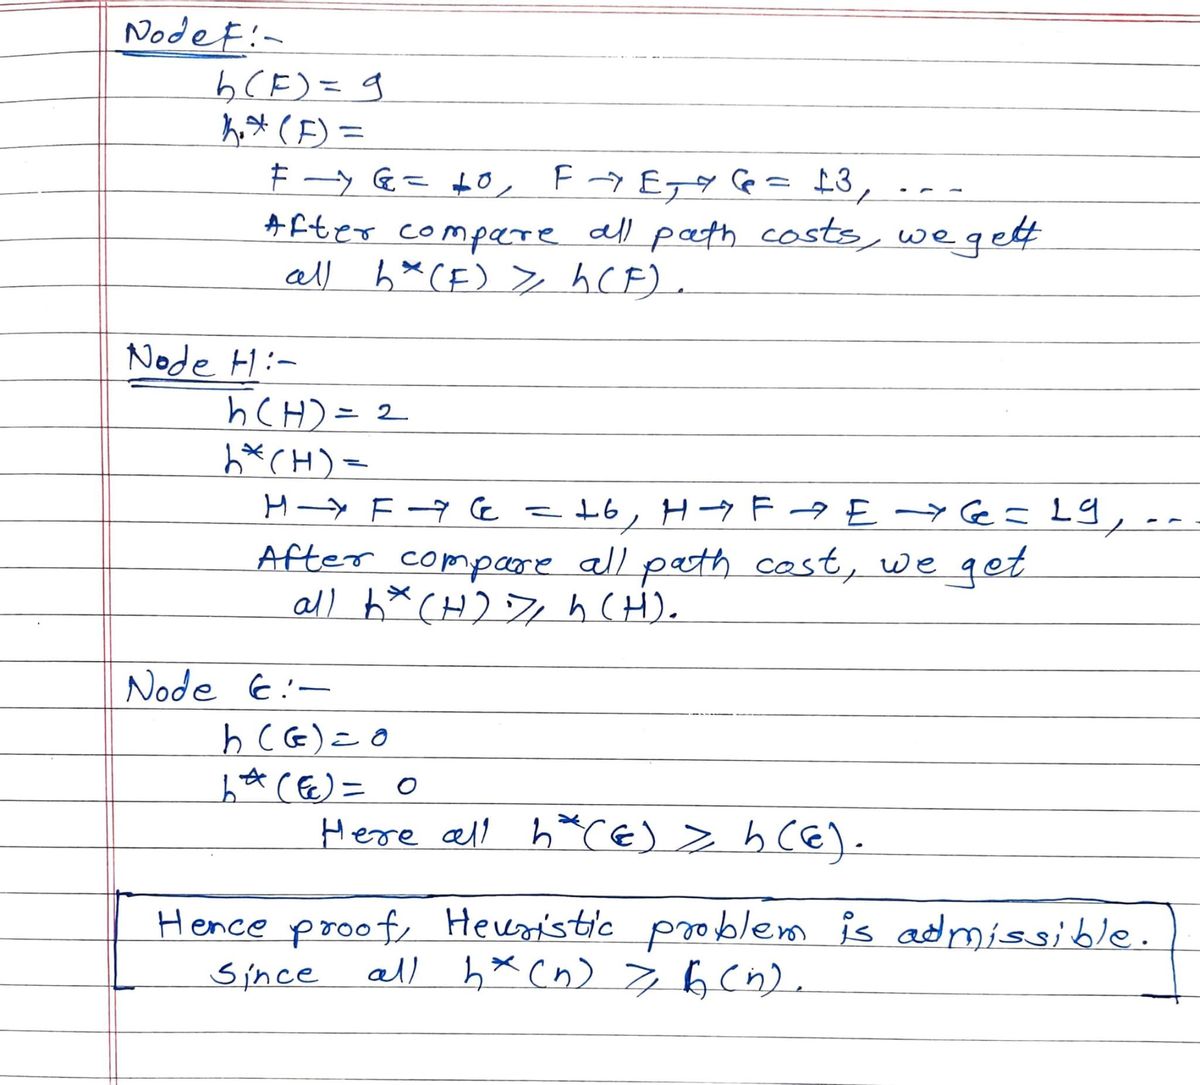 Node F:-
h(F) = 9
h*(F) =
F → G = 10, F → E, → G = 13, ....
After compare all path costs, we gett
all h*(F) ≥ h(F).
Node H:-
h(H) = 2
h*(H) =
H → F → G = 16, H → F → E → G = 19, ...
After compare all path cost, we get
all h*(H) ≥ h(H).
Node G:-
h(G) = 0
h*(G) = 0
Here all h*(G) ≥ h(G).
Hence proof, Heuristic problem is admissible.
Since all h*(n) ≥ h(n).